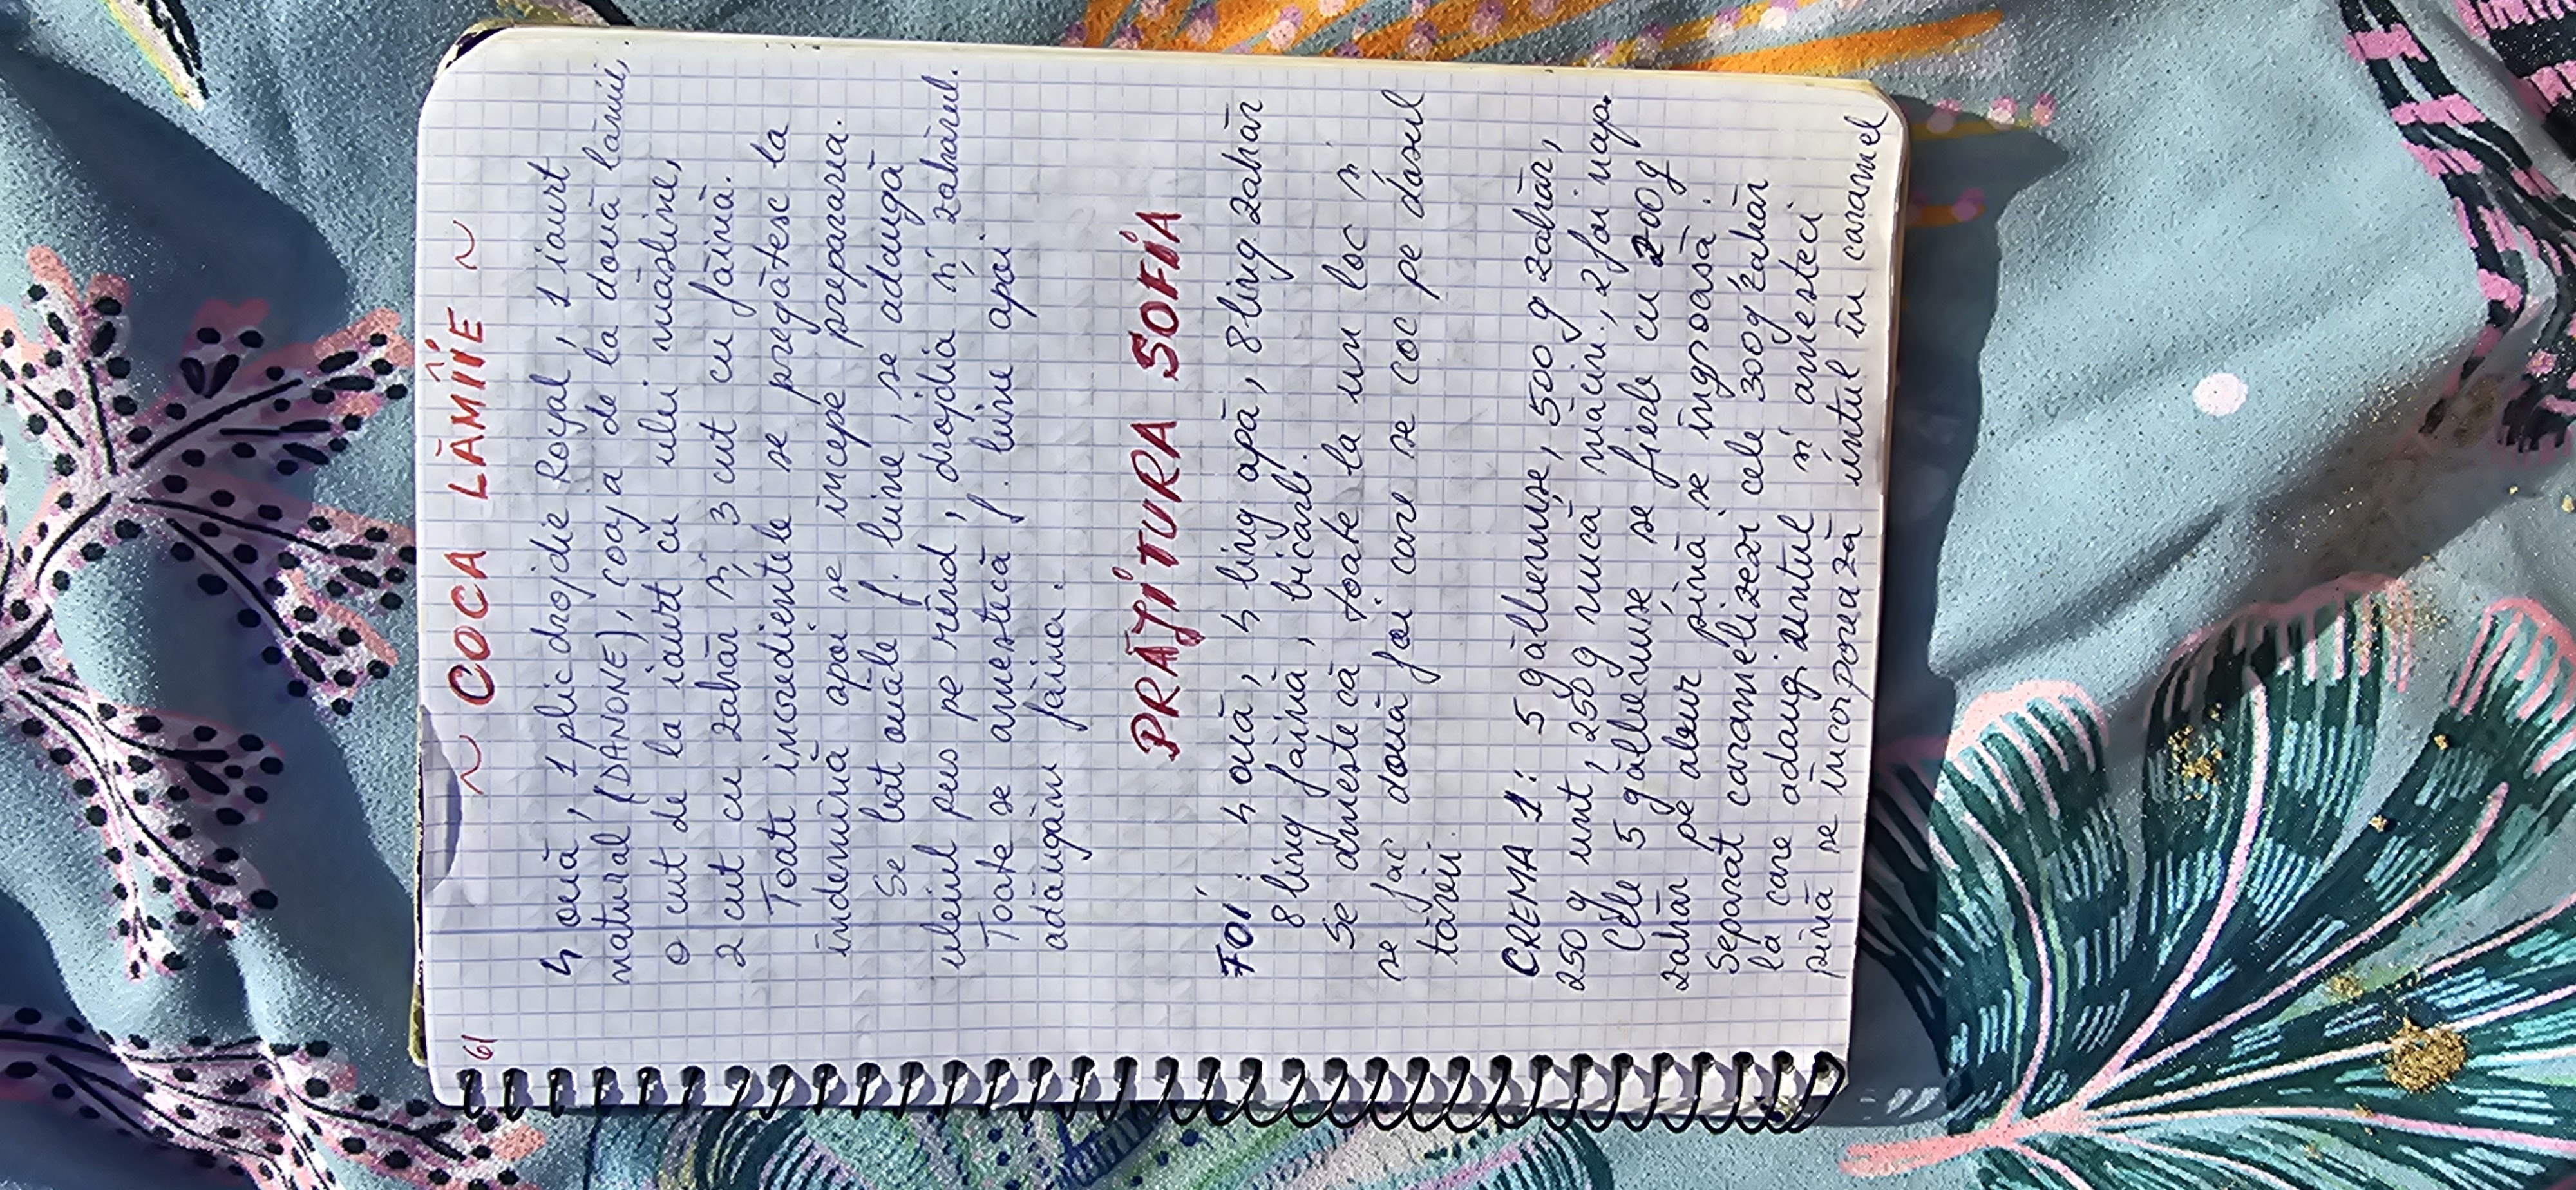 61
~ COCA LĂMÎIE ~
4 ouă, 1 plic drojdie Royal, 1 iaurt
natural (DANONE), coaja de la două lămii,
o cut de la iaurt cu ulei măsline,
2 cut cu zahăr și 3 cut cu făină.
Toate incredientele se pregătesc la
îndemînă apoi se începe prepararea.
Se bat ouăle f. bine, se adaugă
uleiul pus pe rînd, drojdia și zahărul.
Toate se amestecă f. bine apoi
adăugăm făina.
PRĂJITURA SOFIA
FOI: 4 ouă, 4 ling apă, 8 ling zahăr
8 ling făină, bicarb.
Se amestecă toate la un loc și
se fac două foi care se coc pe dosul
tăvii.
CREMA 1: 5 gălbenușe, 500 g zahăr,
250 g unt, 250 g nucă măcin., 2 foi nap.
Cele 5 gălbenușe se fierb cu 200g
zahăr pe abur pînă se îngroașă.
Separat caramelizezi cele 300g zahăr
la care adaugi untul și amesteci
pînă se încorporează untul în caramel